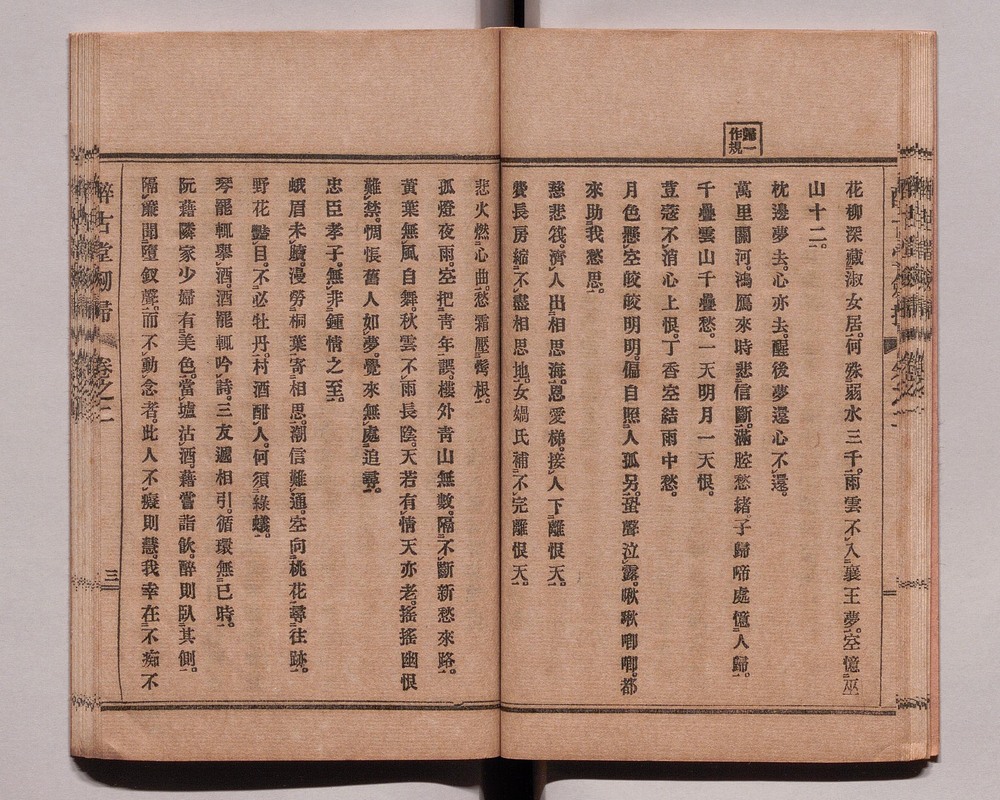 歸一作規
花柳深藏淑女居。何殊弱水三千。雨雲不入襄王夢。空憶巫
山十二。
枕邊夢去。心亦去。醒後夢還心不還。
萬里關河。鴻鴈來時悲信斷。滿腔愁緒子歸啼處憶人歸。
千疊雲山千疊愁。一天明月一天恨。
荳蔻不消心上恨。丁香空結雨中愁。
月色懸空皎皎明明。偏自照人孤另。蛩聲泣露。啾啾唧唧。都
來助我愁思。
慈悲筏。濟人出相思海。恩愛梯。接人下離恨天。
費長房縮不盡相思地。女媧氏補不完離恨天。
悲火燃心曲。愁霜壓鬢根。
孤燈夜雨。空把青年誤。樓外青山無數。隔不斷新愁來路。
黃葉無風自舞。秋雲不雨長陰。天若有情天亦老。搖搖幽恨
難禁。惆悵舊人如夢。覺來無處追尋。
忠臣孝子。無非鍾情之至。
蛾眉未贖。漫勞桐葉寄相思。潮信難通。空向桃花尋往跡。
野花豔目。不必牡丹。村酒酣人。何須綠蟻。
琴罷輒擧酒。酒罷輒吟詩。三友遞相引。循環無已時。
阮籍隣家少婦有美色。當壚沽酒。籍嘗詣飲。醉則臥其側。
隔簾聞墮釵聲。而不動念者。此人不癡則慧。我幸在不痴不
醉古堂劒掃
卷之二
三